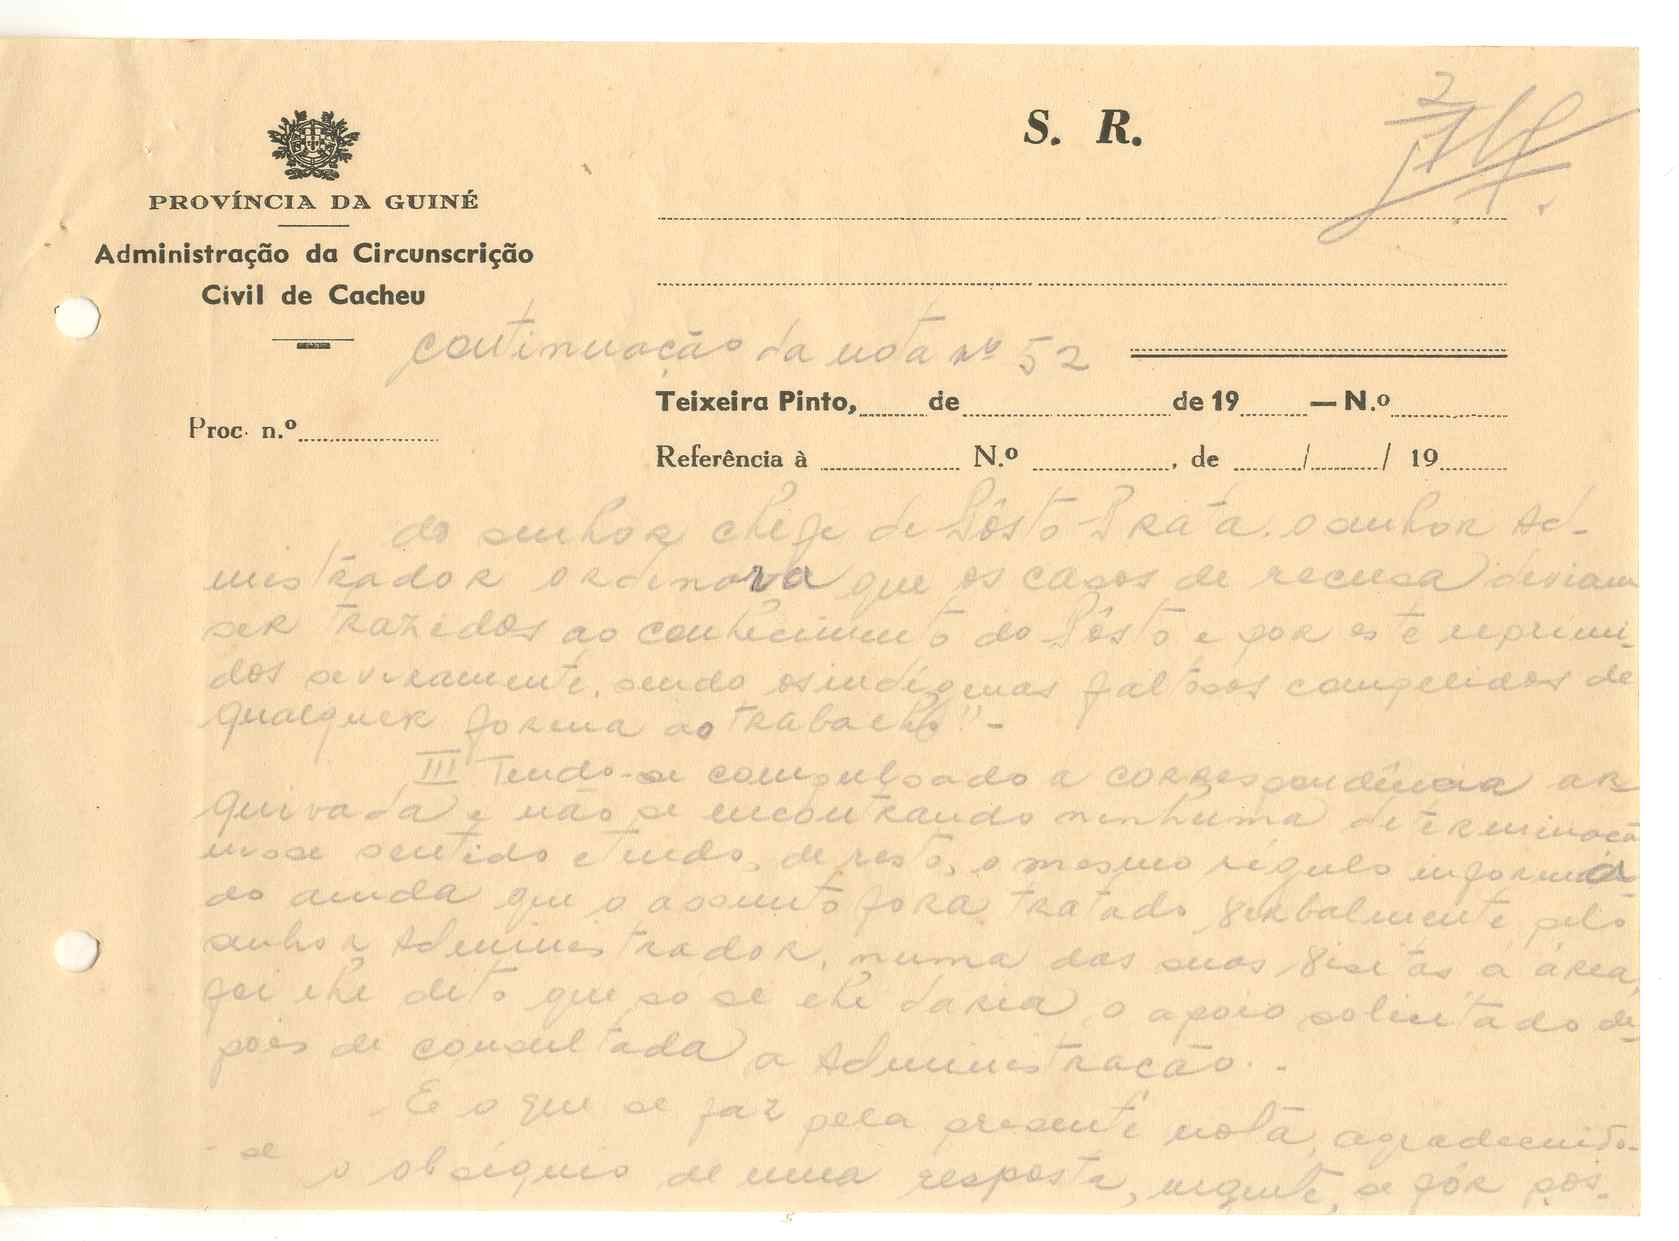 S. R.
PROVÍNCIA DA GUINÉ
Administração da Circunscrição
Civil de Cacheu
continuação da nota nº 52
Teixeira Pinto, de de 19 — N.º
Proc. n.º
Referência à N.º , de / / 19
do senhor chefe de Pôsto Prata, o senhor Ad-
ministrador ordenava que os casos de recusa deviam
ser trazidos ao conhecimento do Pôsto e por este reprimi-
dos severamente, sendo os indígenas faltosos compelidos de
qualquer forma ao trabalho" -
III Tendo-se compulsado a correspondência ar
quivada e não se encontrando ninhuma determinação
nesse sentido e tendo, de resto, o mesmo régulo informa
do ainda que o assunto fora tratado verbalmente pelo
senhor Administrador, numa das suas visitas à área,
foi lhe dito que só se lhe daria o apoio solicitado de
pois de consultada a Administração. -
- É o que se faz pela presente nota, agradecendo-
-se o obséquio de uma resposta, urgente, se fôr pos-